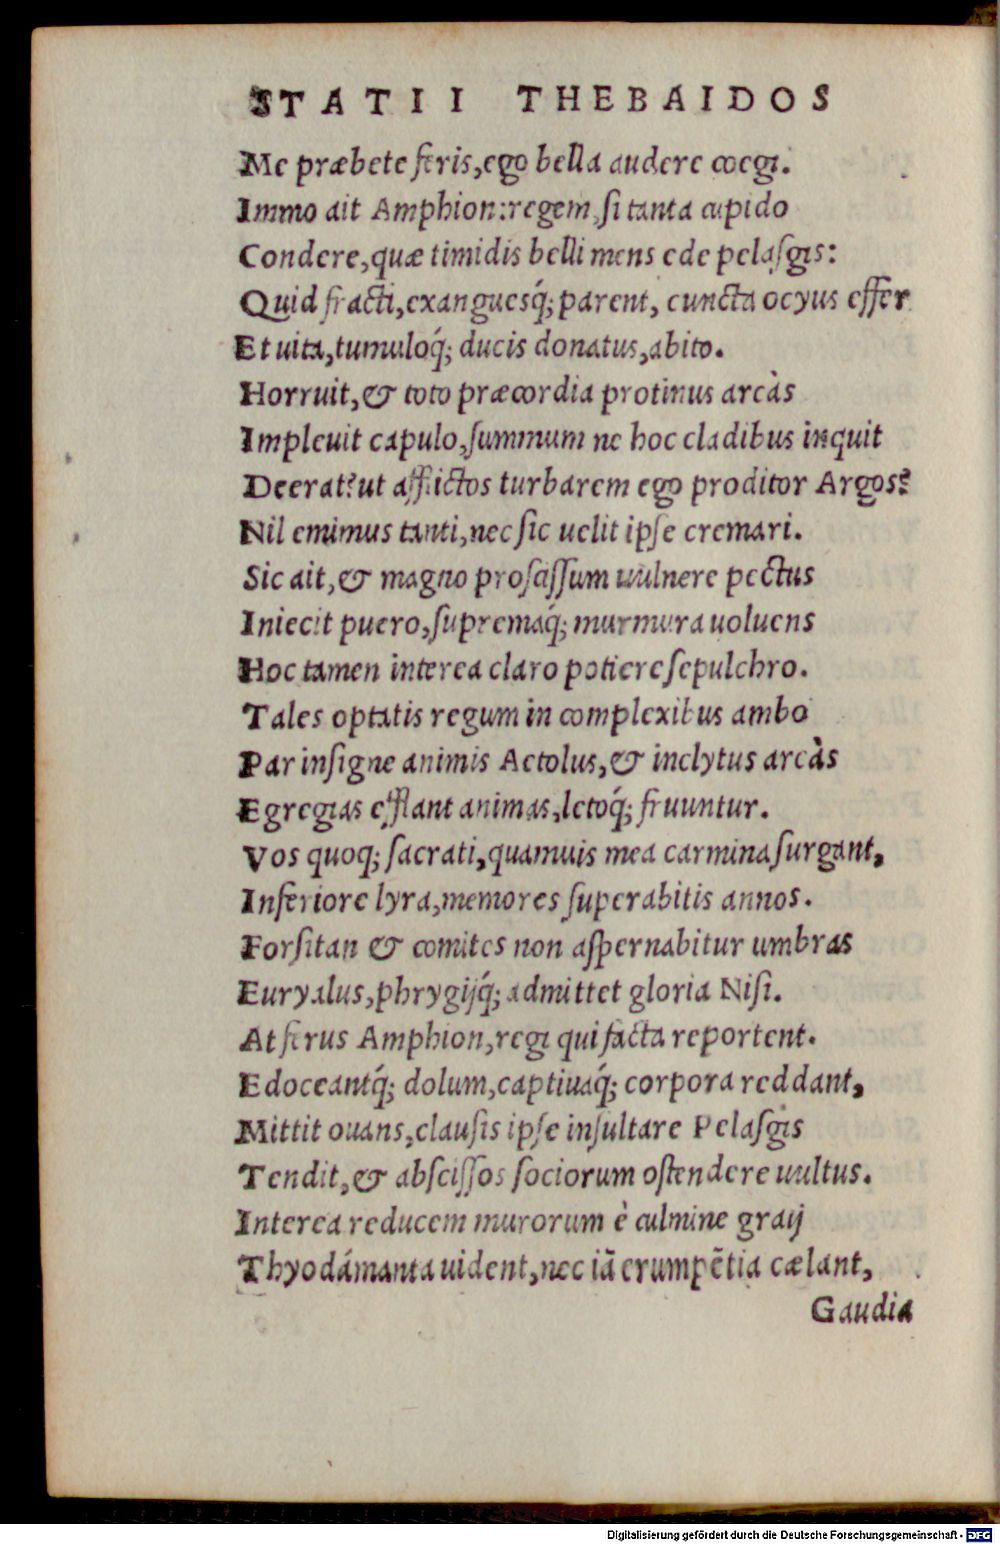 STATII THEBAIDOS
Me præbete feris, ego bella audere coegi.
Immo ait Amphion: regem, si tanta cupido
Condere, quæ timidis belli mens ede pelasgis:
Quid fracti, exanguesq́; parent, cuncta ocyus effer
Et uita, tumuloq́; ducis donatus, abito.
Horruit, & toto præcordia protinus arcàs
Impleuit capulo, summum ne hoc cladibus inquit
Deerat? ut afflictos turbarem ego proditor Argos?
Nil emimus tanti, nec sic uelit ipse cremari.
Sic ait, & magno proscissum uulnere pectus
Iniecit puero, supremaq́; murmura uoluens
Hoc tamen interea claro potiere sepulchro.
Tales optatis regum in complexibus ambo
Par insigne animis Aetolus, & inclytus arcàs
Egregias efflant animas, letoq́; fruuntur.
Vos quoq; sacrati, quamuis mea carmina surgant,
Inferiore lyra, memores superabitis annos.
Forsitan & comites non aspernabitur umbras
Euryalus, phrygijq́; admittet gloria Nisi.
At ferus Amphion, regi qui facta reportent.
Edoceantq́; dolum, captiuaq́; corpora reddant,
Mittit ouans, clausis ipse insultare Pelasgis
Tendit, & abscissos sociorum ostendere uultus.
Interea reducem murorum è culmine graij
Thyodámanta uident, nec iã erumpẽtia cælant,
Gaudia
Digitalisierung gefördert durch die Deutsche Forschungsgemeinschaft - DFG